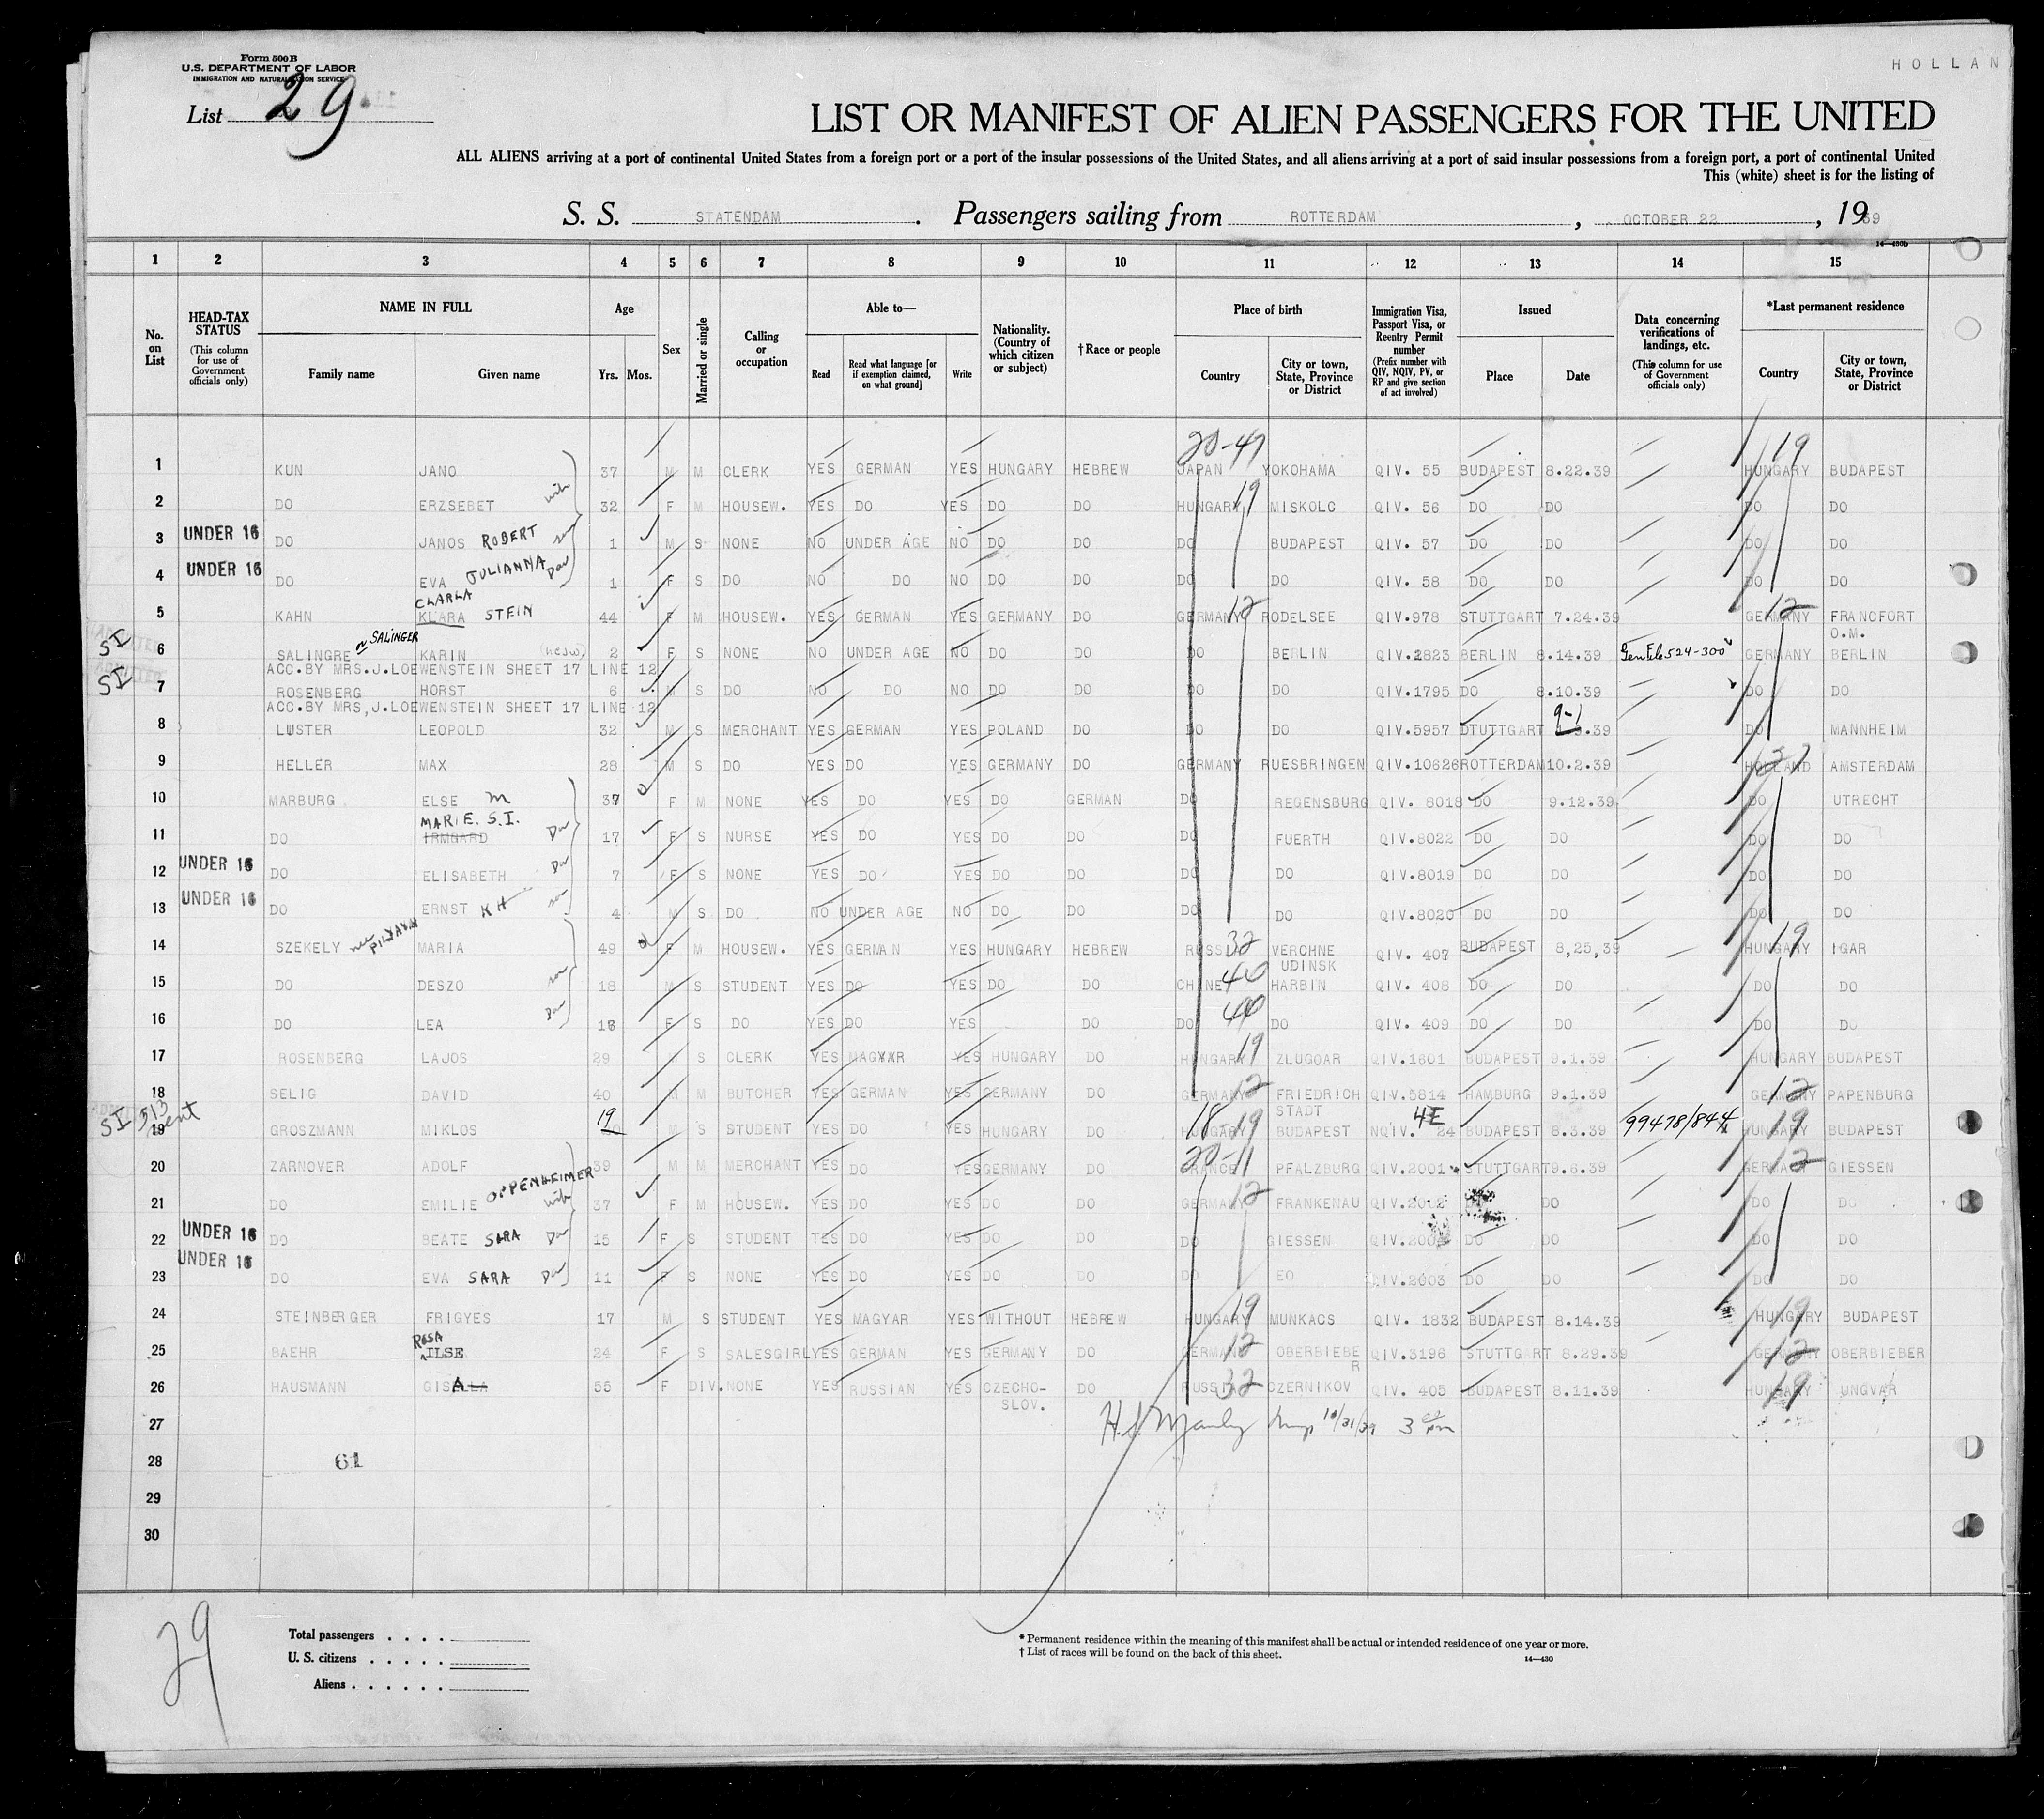 Form 500 B
U.S. DEPARTMENT OF LABOR
IMMIGRATION AND NATURALIZATION SERVICE
HOLLAN
List 29
LIST OR MANIFEST OF ALIEN PASSENGERS FOR THE UNITED
ALL ALIENS arriving at a port of continental United States from a foreign port or a port of the insular possessions of the United States, and all aliens arriving at a port of said insular possessions from a foreign port, a port of continental United
This (white) sheet is for the listing of
S. S. STATENDAM. Passengers sailing from ROTTERDAM, OCTOBER 22, 1939
14—430b
1 2 3 4 5 6 7 8 9 10 11 12 13 14 15
No. on List
HEAD-TAX STATUS (This column for use of Government officials only)
NAME IN FULL Family name Given name
Age Yrs. Mos.
Sex
Married or single
Calling or occupation
Able to— Read Read what language [or if exemption claimed, on what ground] Write
Nationality. (Country of which citizen or subject)
†Race or people
Place of birth Country City or town, State, Province or District
Immigration Visa, Passport Visa, or Reentry Permit number (Prefix number with QIV, NQIV, PV, or RP and give section of act involved)
Issued Place Date
Data concerning verifications of landings, etc. (This column for use of Government officials only)
*Last permanent residence Country City or town, State, Province or District
20-41 19
1 KUN JANO 37 M M CLERK YES GERMAN YES HUNGARY HEBREW JAPAN YOKOHAMA QIV. 55 BUDAPEST 8.22.39 HUNGARY BUDAPEST
2 DO ERZSEBET wife 32 F M HOUSEW. YES DO YES DO DO HUNGARY 19 MISKOLC QIV. 56 DO DO DO DO
3 UNDER 16 DO JANOS ROBERT son 1 M S NONE NO UNDER AGE NO DO DO DO BUDAPEST QIV. 57 DO DO DO DO
4 UNDER 16 DO EVA JULIANNA Dau 1 F S DO NO DO NO DO DO DO DO QIV. 58 DO DO DO DO
CLARLA
5 KAHN KLARA STEIN 44 F M HOUSEW. YES GERMAN YES GERMANY DO GERMANY 12 RODELSEE QIV.978 STUTTGART 7.24.39 GERMANY 12 FRANCFORT O.M.
SI 6 SALINGRE or SALINGER KARIN 2 F S NONE NO UNDER AGE NO DO DO DO BERLIN QIV.2823 BERLIN 8.14.39 Gen File 524-300 GERMANY BERLIN
ACC.BY MRS.J.LOEWENSTEIN SHEET 17 LINE 12
SI 7 ROSENBERG HORST 6 M S DO NO DO NO DO DO DO DO QIV.1795 DO 8.10.39 DO DO
ACC.BY MRS,J.LOEWENSTEIN SHEET 17 LINE 12
9-1
8 LUSTER LEOPOLD 32 M S MERCHANT YES GERMAN YES POLAND DO DO DO QIV.5957 DTUTTGART .39 DO MANNHEIM
9 HELLER MAX 28 M S DO YES DO YES GERMANY DO GERMANY RUESBRINGEN QIV.10626 ROTTERDAM 10.2.39 HOLLAND AMSTERDAM
10 MARBURG ELSE M 37 F M NONE YES DO YES DO GERMAN DO REGENSBURG QIV. 8018 DO 9.12.39 DO UTRECHT
MARIE. S.I.
11 DO IRMGARD Dau 17 F S NURSE YES DO YES DO DO DO FUERTH QIV.8022 DO DO DO DO
12 UNDER 16 DO ELISABETH Dau 7 F S NONE YES DO YES DO DO DO DO QIV.8019 DO DO DO DO
13 UNDER 16 DO ERNST KH son 4 M S DO NO UNDER AGE NO DO DO DO DO QIV.8020 DO DO DO DO
14 SZEKELY nee MARIA 49 F M HOUSEW. YES GERMAN YES HUNGARY HEBREW RUSSIA 32 VERCHNE UDINSK QIV. 407 BUDAPEST 8,25,39 HUNGARY 19 IGAR
15 DO DESZO son 18 M S STUDENT YES DO YES DO DO CHINE 40 HARBIN QIV. 408 DO DO DO DO
16 DO LEA Dau 16 F S DO YES DO YES DO DO 40 DO QIV. 409 DO DO DO DO
17 ROSENBERG LAJOS 29 M S CLERK YES MAGYAR YES HUNGARY DO HUNGARY 19 ZLUGOAR QIV.1601 BUDAPEST 9.1.39 HUNGARY BUDAPEST
18 SELIG DAVID 40 M M BUTCHER YES GERMAN YES GERMANY DO GERMANY 12 FRIEDRICH STADT QIV.5814 HAMBURG 9.1.39 GERMANY 12 PAPENBURG
SI 513 19 GROSZMANN MIKLOS 19 M S STUDENT YES DO YES HUNGARY DO 18-19 HUNGARY BUDAPEST NQIV. 4E 24 BUDAPEST 8.3.39 99478/844 HUNGARY 19 BUDAPEST
20 ZARNOVER ADOLF 39 M M MERCHANT YES DO YES GERMANY DO 20-11 FRANCE PFALZBURG QIV.2001 STUTTGART 9.6.39 GERMANY 12 GIESSEN
21 DO EMILIE OPPENHEIMER wife 37 F M HOUSEW. YES DO YES DO DO GERMANY 12 FRANKENAU QIV.2002 DO DO DO
22 UNDER 16 DO BEATE SARA Dau 15 F S STUDENT YES DO YES DO DO DO GIESSEN DO DO DO DO
23 UNDER 16 DO EVA SARA Dau 11 F S NONE YES DO YES DO DO DO EO QIV.2003 DO DO DO DO
24 STEINBERGER FRIGYES 17 M S STUDENT YES MAGYAR YES WITHOUT HEBREW HUNGARY 19 MUNKACS QIV. 1832 BUDAPEST 8.14.39 HUNGARY 19 BUDAPEST
ROSA
25 BAEHR ILSE 24 F S SALESGIRL YES GERMAN YES GERMANY DO GERMANY 12 OBERBIEBER QIV.3196 STUTTGART 8.29.39 GERMANY 12 OBERBIEBER
26 HAUSMANN GISELLA A 55 F DIV. NONE YES RUSSIAN YES CZECHO-SLOV. DO RUSSIA 32 CZERNIKOV QIV. 405 BUDAPEST 8.11.39 HUNGARY 19 UNGVAR
27 10/31/39 3 pm
28 61
29
30
29
Total passengers
U. S. citizens
Aliens
* Permanent residence within the meaning of this manifest shall be actual or intended residence of one year or more.
† List of races will be found on the back of this sheet.
14—430